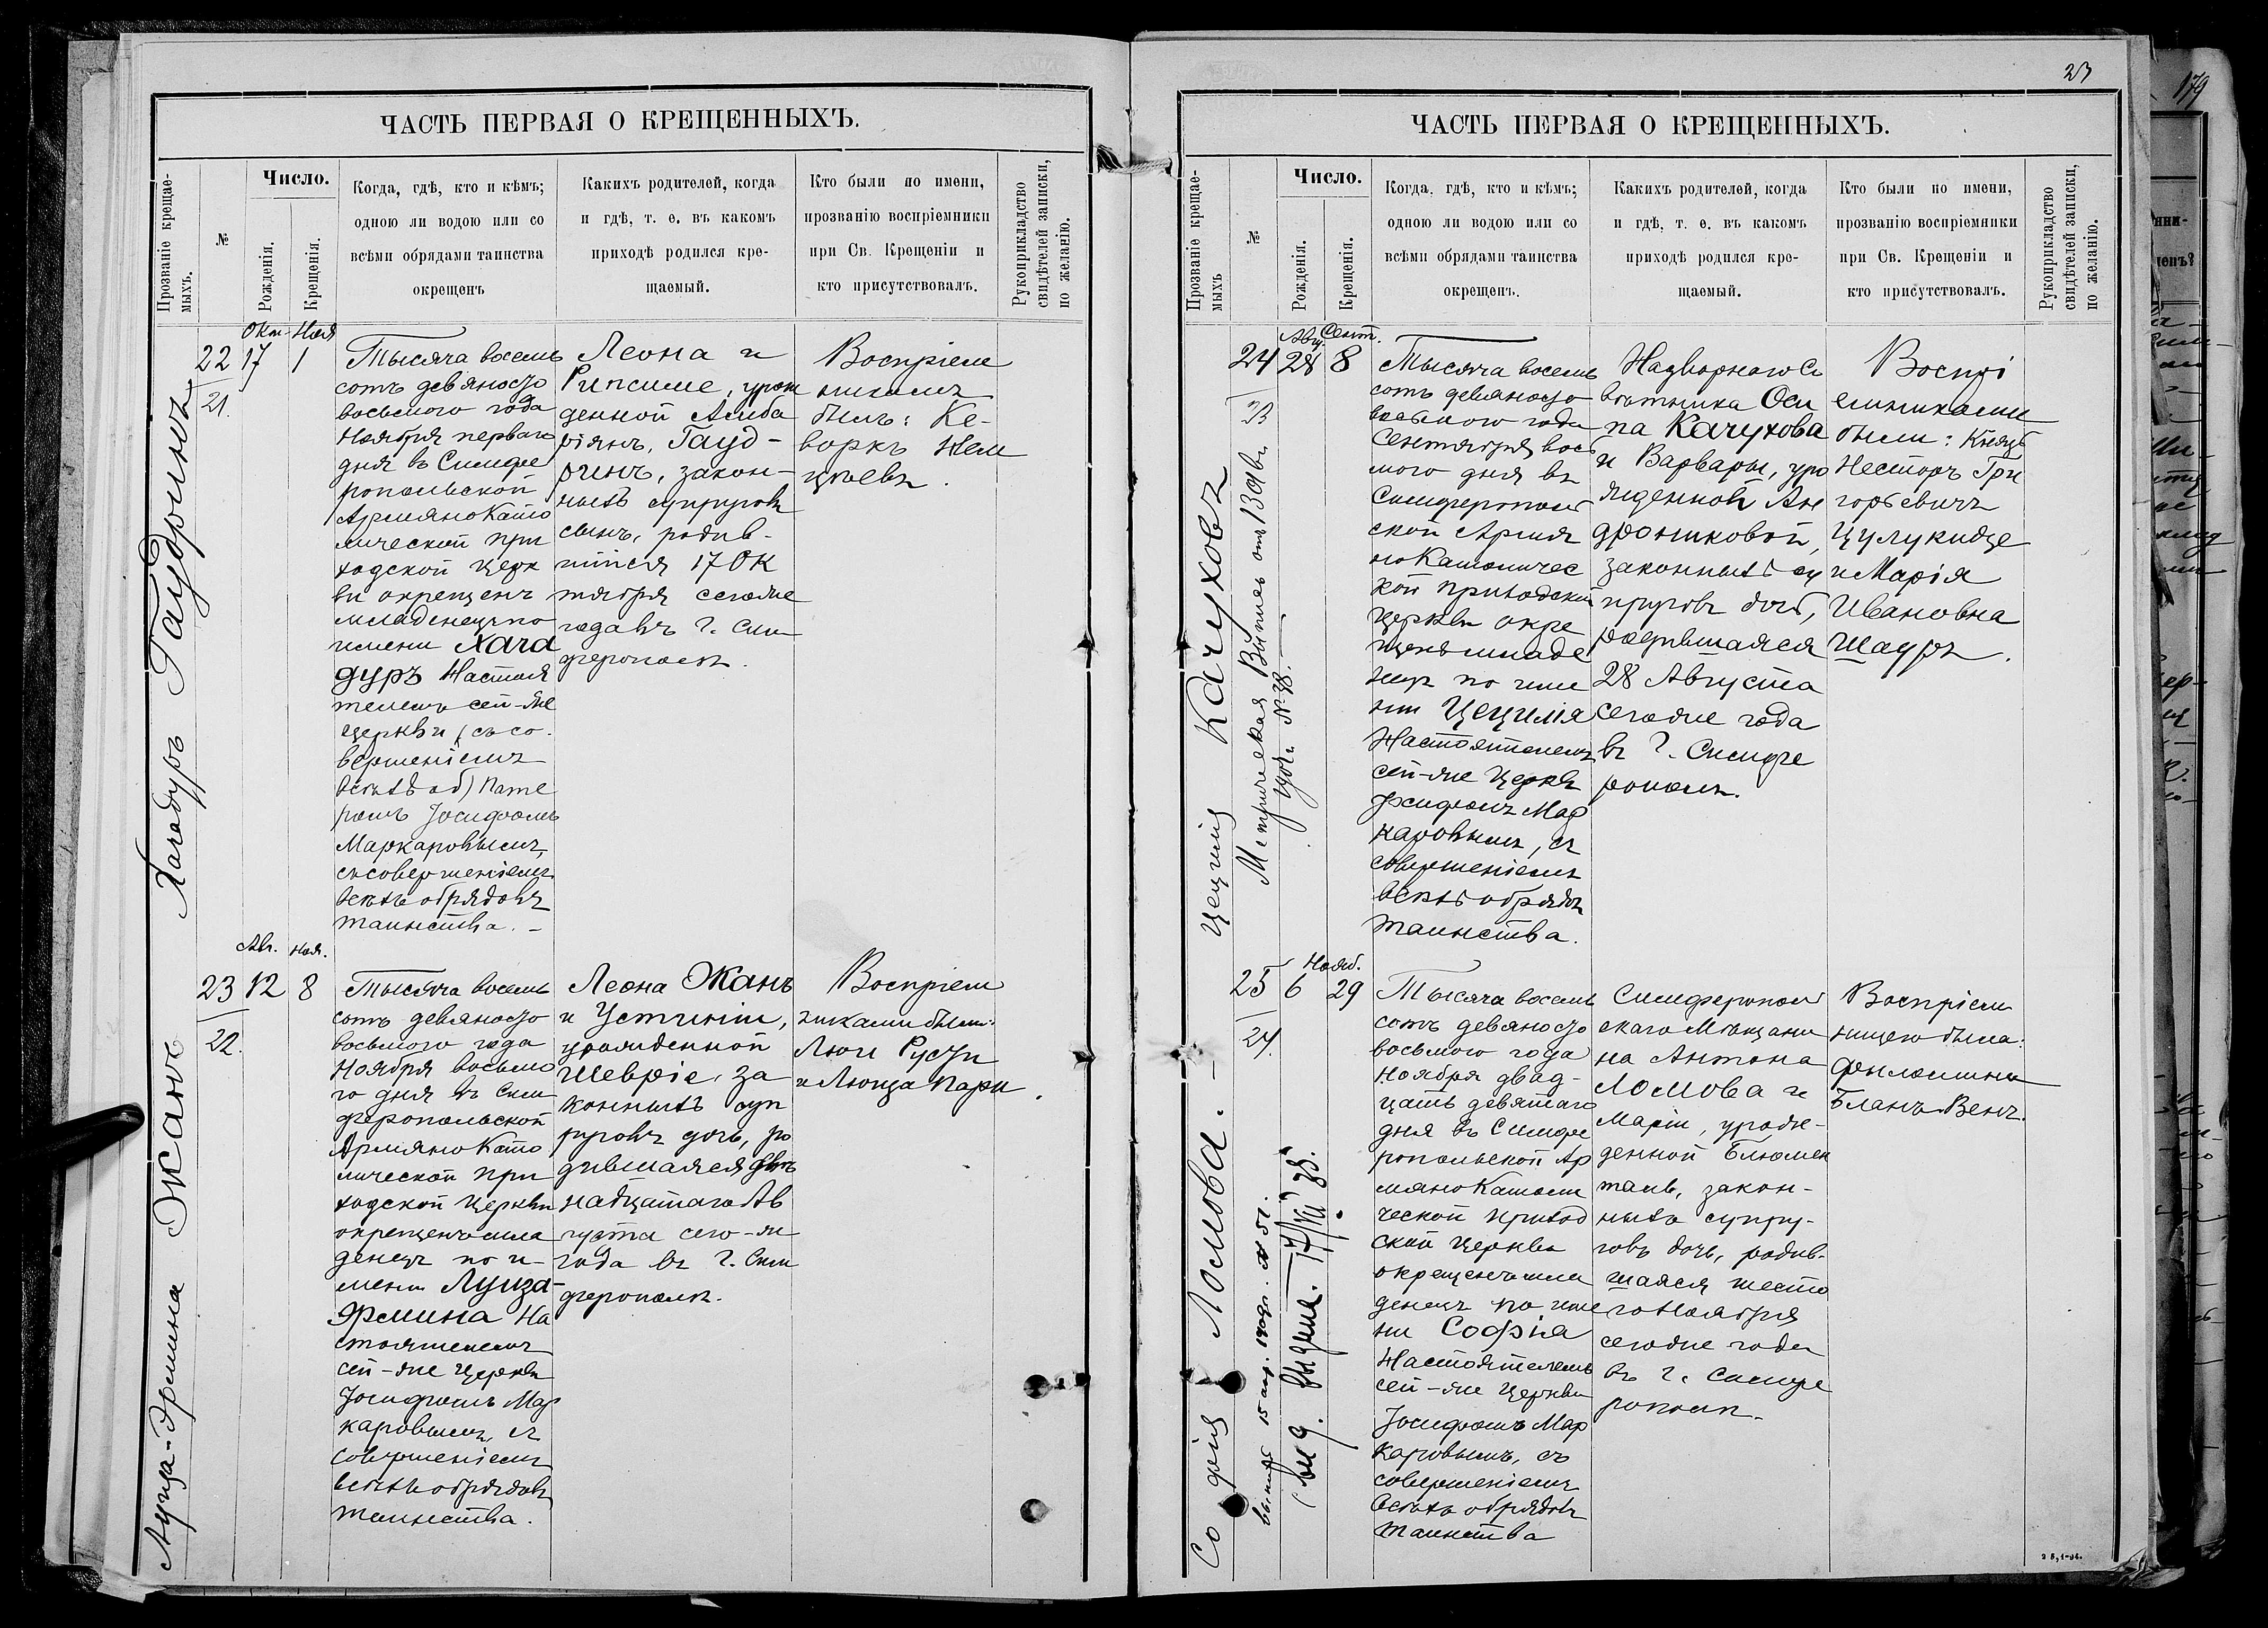 ЧАСТЬ ПЕРВАЯ О КРЕЩЕННЫХЪ.
Прозваніе крещае-
мыхъ.
№
Число.
Рожденія.
Крещенія.
Когда, гдѣ, кто и кѣмъ;
одною ли водою или со
всѣми обрядами таинства
окрещенъ
Какихъ родителей, когда
и гдѣ, т. е. въ какомъ
приходѣ родился кре-
щаемый.
Кто были по имени,
прозванію воспріемники
при Св. Крещеніи и
кто присутствовалъ.
Рукоприкладство
свидѣтелей записки,
по желанію.
Хачадуръ Гаудринъ
22
21.
Окт. 17
Ноя 1
Тысяча восемь
сотъ девяносто
восьмого года
Ноября перваго
дня въ Симфе
ропольской
Армяно Като
лической при
ходской церк
ви окрещенъ
младенецъ по
имени Хача
дуръ Настоя
телемъ сей-же
церкви (съ со.
вершеніемъ
всѣхъ об) Пате
ромъ Іосифомъ
Маркаровымъ,
съ совершеніемъ
всѣхъ обрядовъ
таинства. -
Леона и
Рипсиме, урож
денной Алиба
ріянъ, Гауд-
ринъ, закон-
ныхъ супруговъ
сынъ, родив-
шійся 17 Ок
тября сегоже
года въ г. Сим
ферополѣ.
Воспріем
никомъ
былъ: Ке-
воркъ Нем
цовъ.
Луиза-Эрмина Жанъ
23
22.
Авг. 12
Ноя. 8
Тысяча восемь
сотъ девяносто
восьмого года
Ноября восьмо
го дня въ Сим
феропольской
Армяно Като
лической при
ходской Церкви
окрещенъ мла
денецъ по и-
мени Луиза-
Эрмина На
стоятелемъ
сей-же Церкви
Іосифомъ Мар
каровымъ, съ
совершеніемъ
всѣхъ обрядовъ
таинства.
Леона Жанъ
и Устиніи,
урожденной
Шевріе, за
конныхъ суп
руговъ дочь, ро
дившаяся двѣ
надцатаго Ав
густа сего-же
года въ г. Сим
ферополѣ.
Воспріем
никами были:
Люи Русъи
и Люиза Пари.
23
179
ЧАСТЬ ПЕРВАЯ О КРЕЩЕННЫХЪ.
Прозваніе крещае-
мыхъ
№
Число.
Рожденія.
Крещенія.
Когда, гдѣ, кто и кѣмъ;
одною ли водою или со
всѣми обрядами таинства
окрещенъ.
Какихъ родителей, когда
и гдѣ, т. е. въ какомъ
приходѣ родился кре-
щаемый.
Кто были по имени,
прозванію воспріемники
при Св. Крещеніи и
кто присутствовалъ.
Рукоприкладство
свидѣтелей записки,
по желанію.
Цецилія Качуховъ
Метрическая Выпись
№ 38.
24
23
Авг. 28
Сент. 8
Тысяча восемь
сотъ девяносто
восьмого года
Сентября вось
мого дня въ
Симферополь
ской Армя
но Католичес
кой приходской
Церкви окре
щенъ младе
нецъ по име
ни Цецилія
Настоятелемъ
сей-же Церкви
Іосифомъ Мар
каровымъ, съ
совершеніемъ
всѣхъ обрядовъ
таинства.
Надворнаго Со
вѣтника Оси
па Качухова
и Варвары, уро
жденной Ан
дрониковой,
законныхъ су
пруговъ дочь,
родившаяся
28 Августа
сегоже года
въ г. Симфе
рополѣ.
Воспрі
емниками
были: Князь
Несторъ Гри
горьевичъ
Цулукидзе
и Марія
Ивановна
Шадръ.
Софія Ломова. -
выпись 15 апр. № 51.
25
24.
6
Нояб. 29
Тысяча восемь
сотъ девяносто
восьмого года
Ноября двад-
цать девятаго
дня въ Симфе
ропольской Ар
мяно Католи
ческой приход
ской Церкви
окрещенъ мла
денецъ по име
ни Софія
Настоятелемъ
сей-же Церкви
Іосифомъ Мар
каровымъ, съ
совершеніемъ
всѣхъ обрядовъ
таинства
Симферополь
скаго Мѣщани
на Антона
Ломова и
Маріи, урож-
денной Блюмен
таль, закон-
ныхъ супру-
говъ дочь, родив-
шаяся шесто
го Ноября
сегоже года
въ г. Симфе
рополѣ.
Воспріем
ницею была:
Филомина
Бланъ-Венъ.